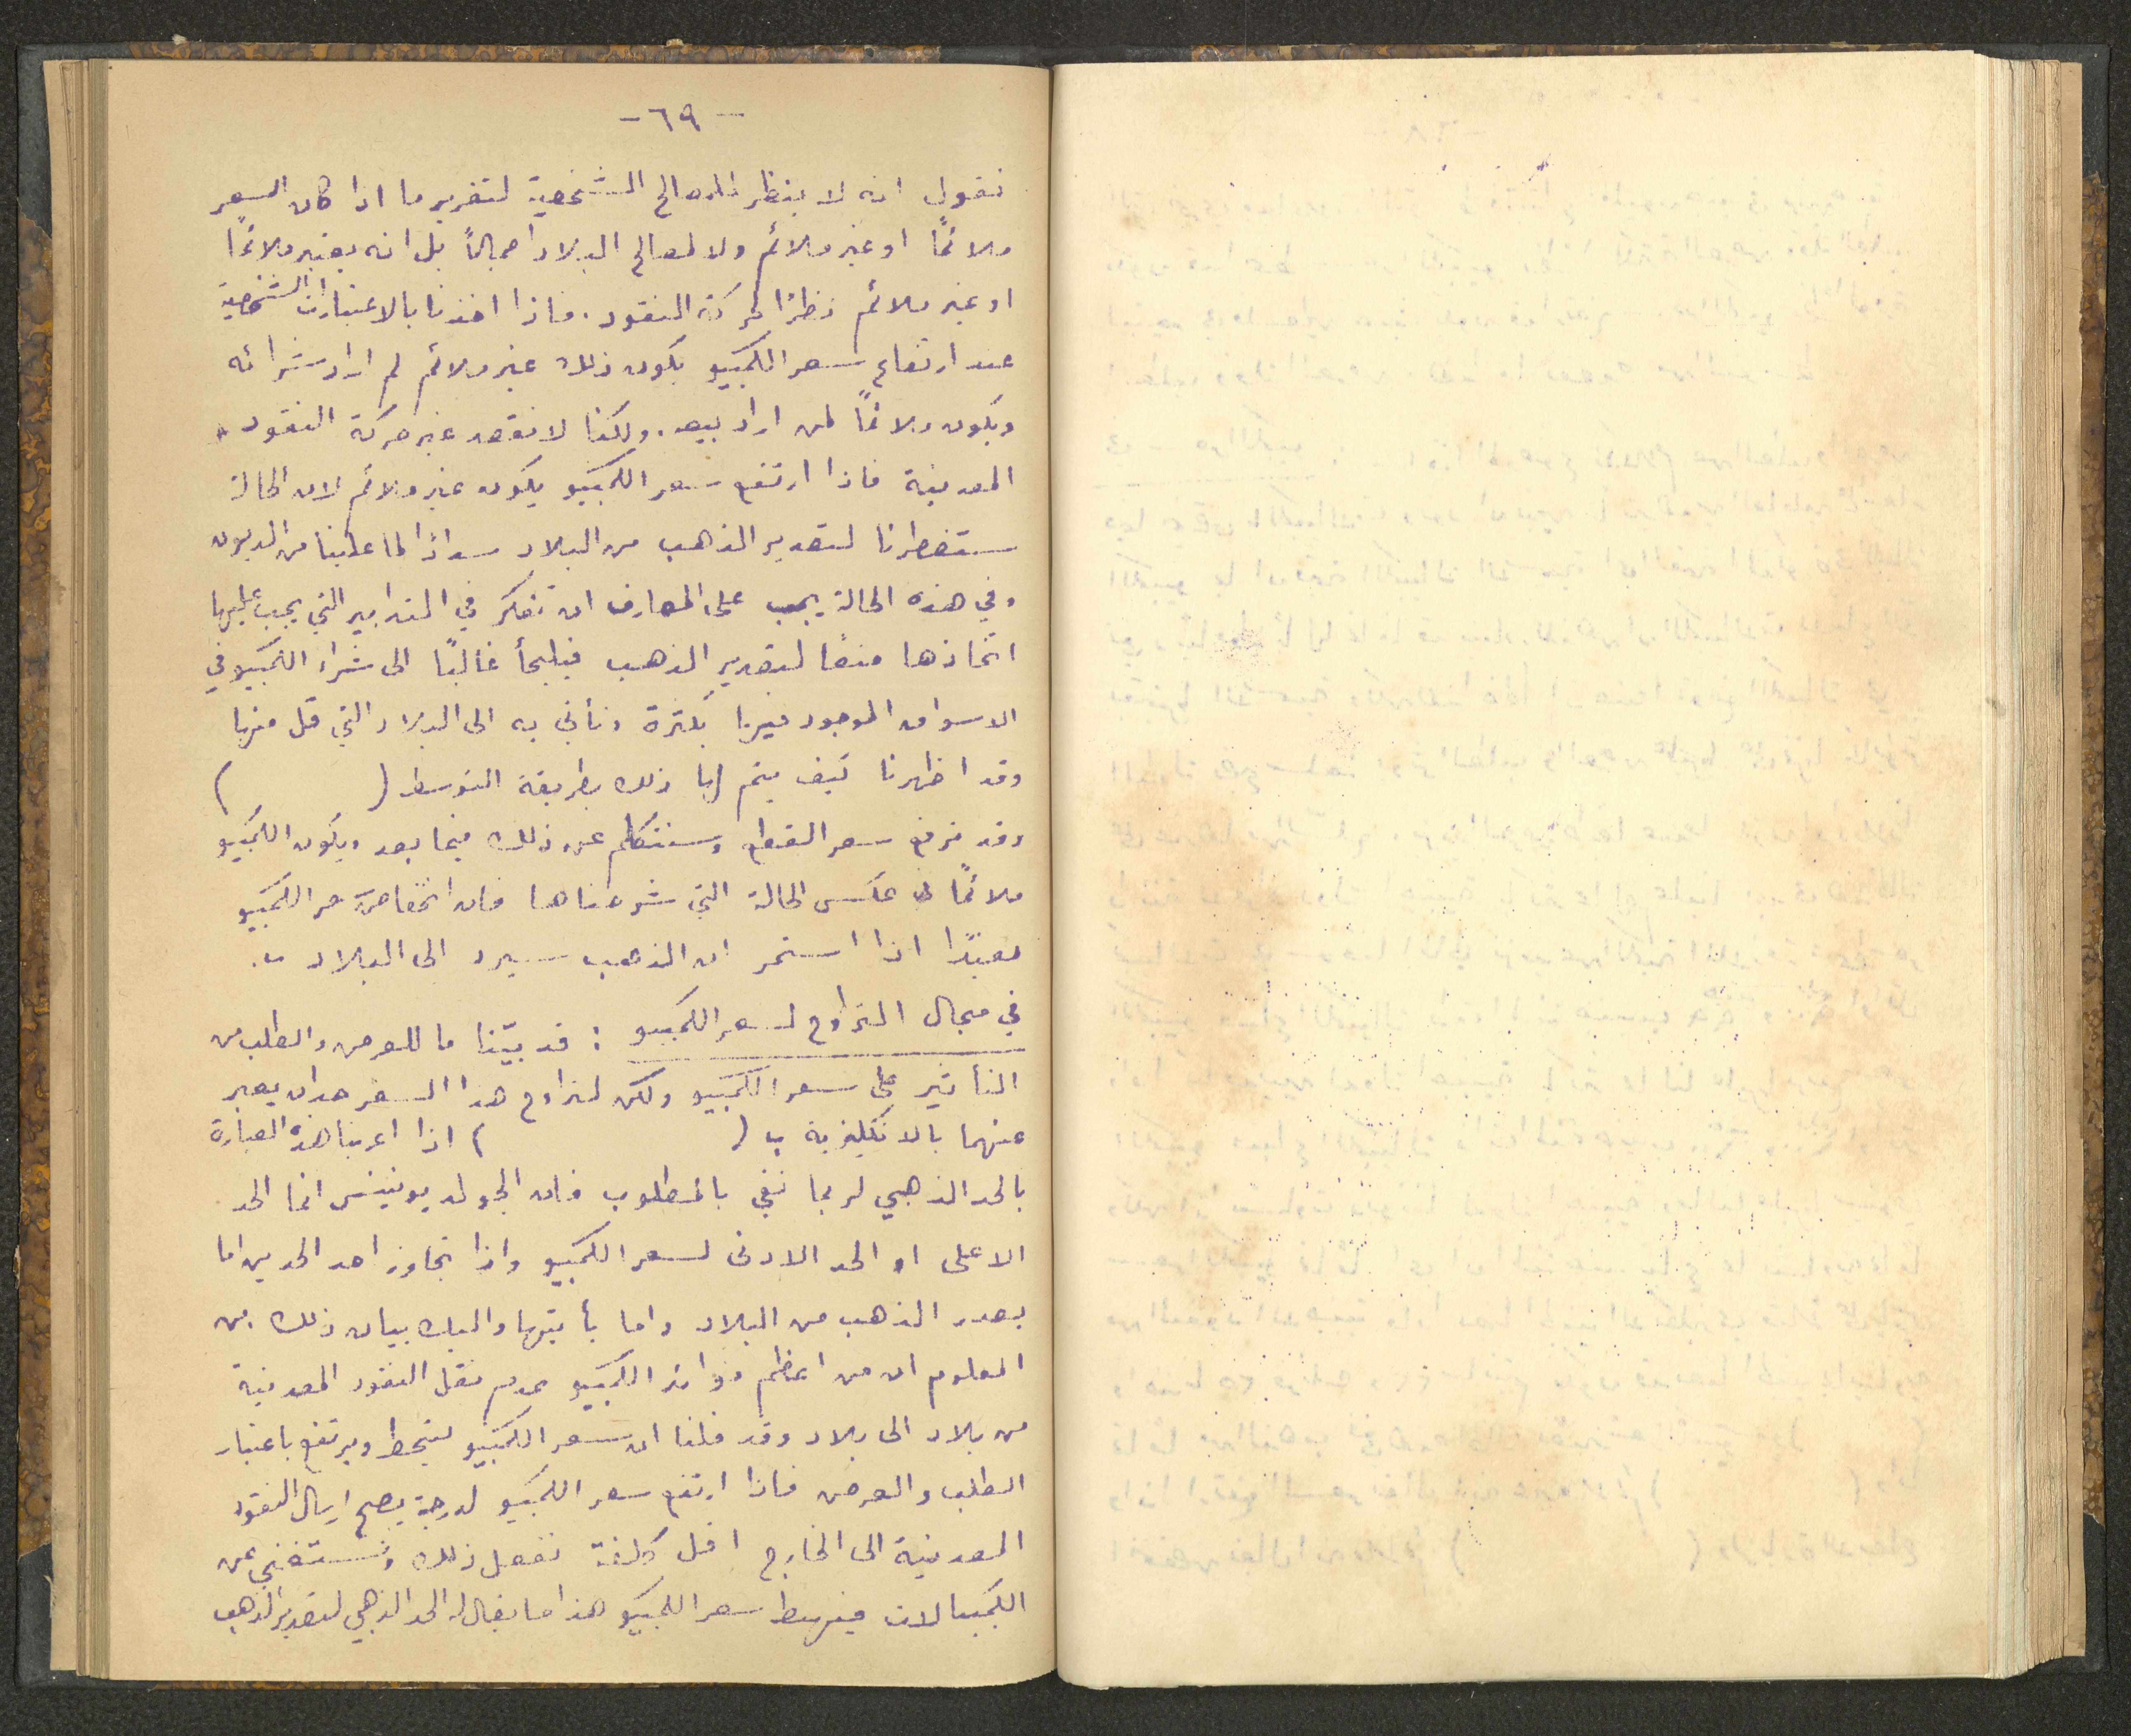 -٦٩-
نقول انه لا ينظر للمصالح الشخصية لتقرير ما اذا كان السعر
ملائمًا او غير ملائم ولا لمصالح البلاد اجمالاً بل انه يعتبر ملائمًا
او غير ملائم نظرًا لحركة النقود. فاذا اخذنا بالاعتبارات الشخصية
عند ارتفاع سعر الكمبيو يكون ذلك غير ملائم لم اراد شرائه
ويكون ملائمًا لمن اراد بيعه. ولكننا لا نقصد غير حركة النقود
المعدنية فاذا ارتفع سعر الكمبيو يكون غير ملائم لان الحالة
ستضطرنا لتصدير الذهب من البلاد سدادًا لما علينا من الديون
وفي هذه الحالة يجب على المصارف ان تفكر في التدابير التي يجب عليها
اتخاذها منعًا لتصدير الذهب فيلجأ غالبًا الى شراء الكمبيو في
الاسواق الموجود فيها بكثرة وتأتي به الى البلاد التي قل منها
وقد اظهرنا كيف يتم لها ذلك بطريقة التوسط ( )
وقد ترفع سعر القطع وسنتكلم عن ذلك فيما بعد ويكون الكمبيو
ملائمًا في عكس الحالة التي شرحناها فان انخفاض سعر الكمبيو
مفيدًا اذا استمر ان الذهب سيرد الى البلاد ..
في مجال التراوح لسعر الكمبيو : قد بيّنا ما للعرض والطلب من
التأثير على سعر الكمبيو ولكن لتراوح هذا السعر حدان يعبر
عنهما بالانكليزية ب ( ) اذا اعربنا هذه العبارة
بالحد الذهبي لربما نفي بالمطلوب فان الجولد بوينتس انما الحد
الاعلى او الحد الادنى لسعر الكمبيو واذا تجاوز احد الحدين اما
يصدر الذهب من البلاد واما يأتيها واليك بيان ذلك. من
المعلوم ان من اعظم فوائد الكمبيو عدم نقل النقود المعدنية
من بلاد الى بلاد وقد قلنا ان سعر الكمبيو ينحط ويرتفع باعتبار
الطلب والعرض فاذا ارتفع سعر الكمبيو لدرجة يصبح ارسال النقود
المعدنية الى الخارج اقل كلفة نفعل ذلك ونستغني عن
الكمبيالات فيهبط سعر الكمبيو هذا ما يقال له الحد الذهبي لتصدير الذهب